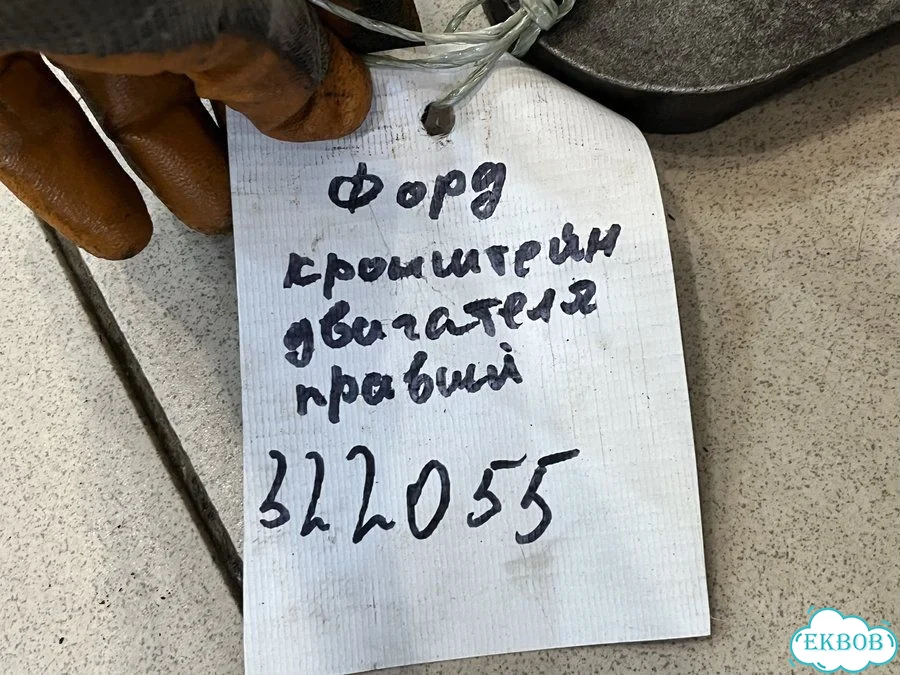 Форд
кронштейн
двигателя
правый
322055
EKBOB